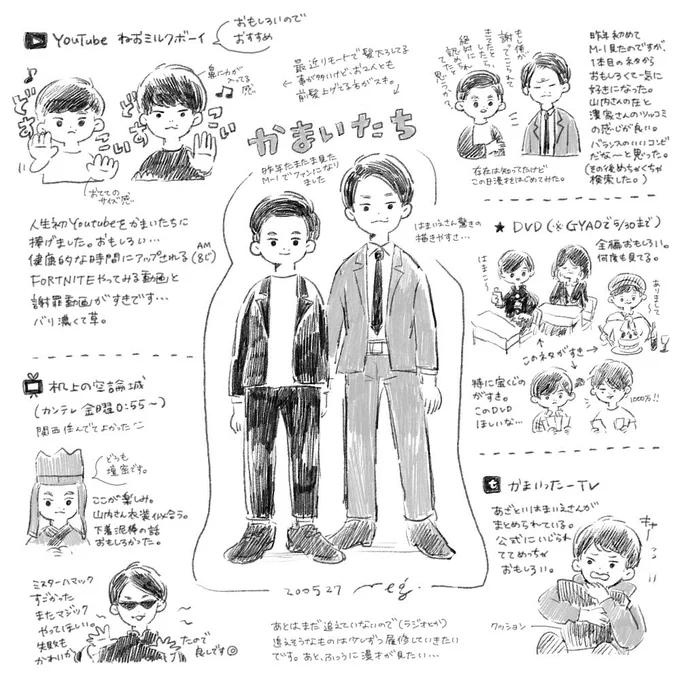 YouTube ねおミルクボーイ
おもしろいので
おすすめ
鼻に力が
入ってる
感
どすこい
どすこい
おてての
サイズ感
人生初YouTubeをかまいたちに
捧げました。おもしろい…
健康的な時間にアップされる(AM8じ)
FORTNITEやってみる動画と
謝罪動画がすきです…
バリ濃くて草。
最近リモートで髪下ろしてる
事が多いけど、お2人とも
前髪上げてる方がスキ。
かまいたち
昨年たまたま見た
M-1でファンになり
ました
はまいえさん驚きの
描きやすさ…
もし俺が
謝ってこられて
きてたとしたら、
絶対に
認められ
てたと
思うか?
存在は知ってたけど
この日漫才をはじめてみた。
昨年初めて
M-1見たのですが、
1本目のネタから
おもしろくて一気に
好きになった。
山内さんの圧と
濱家さんのツッコミ
の感じが良い。
バランスのいいコンビ
だなーと思った。
(その後めちゃくちゃ
検索した。)
★ DVD (※GYAOで5/30まで)
全編おもしろい。
何度も見てる。
はまこ〜
ありまして〜
このネタがすき
特に宝くじの
がすき。
このDVD
ほしいな…
1000万!!
机上の空論城
(カンテレ 金曜0:55〜)
関西住んでてよかった
どうも
壇蜜です。
ここが楽しみ。
山内さん衣装似合う。
下着泥棒の話
おもしろかった。
ミスターハマック
すごかった
またマジック
やってほしい。
失敗も
かわいか
ったので
良しです
200527 eg.
あとはまだ追えていないので(ラジオとか)
追えそうなものは少しずつ履修していきたい
です。あと、ふつうに漫才が見たい…
かまいったーTV
あざと川はまいえさんが
まとめられている。
公式にいじられ
ててめっちゃ
おもしろい。
キャー
クッション